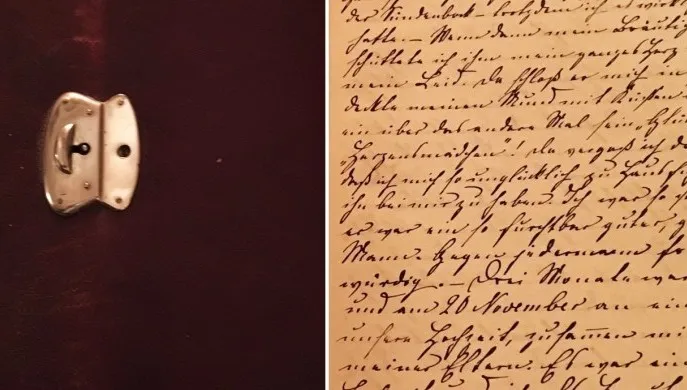 der Sündenbock – trotzdem ich es
hatte. – Wenn dann mein Bräutig
schüttete ich ihm mein ganzes Herz
mein Leid. Da schloß er mich in
deckte meinen Mund mit Küssen
ein über das andere Mal sein „Glü
„Herzensmädchen“! Da vergaß ich
daß ich mich so unglücklich zu Hause
ihn bei mir zu haben. Ich war so
er war ein so furchtbar guter,
Mann. Gegen jedermann
würdig. – Drei Monate
und am 20 November an ein
unsere Hochzeit, zusammen mi
meiner Eltern. Es war ein